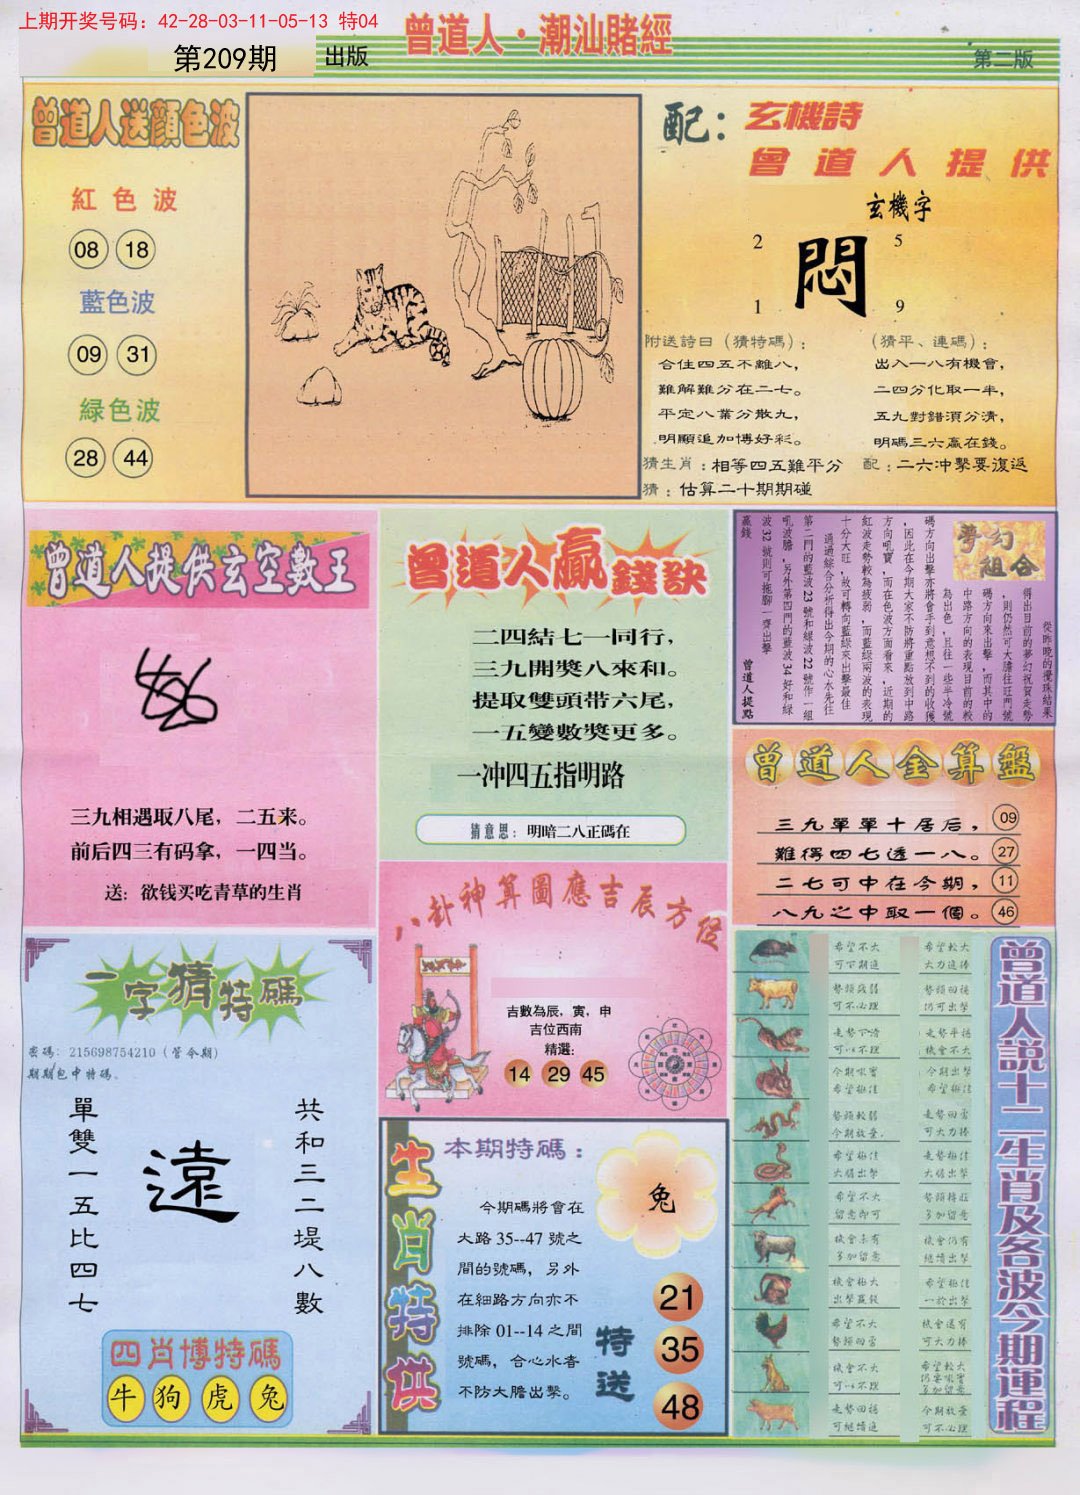 上期开奖号码：42-28-03-11-05-13 特04
第209期
出版
曾道人·潮汕賭經
第二版
曾道人送顔色波
紅色波
08 18
藍色波
09 31
緑色波
28 44
配：玄機詩
曾道人提供
玄機字
2 5
悶
1 9
附送詩曰（猜特碼）：
合住四五不離八，
難解難分在二七。
平定八業分散九，
明顯追加博好彩。
（猜平、連碼）：
出入一八有機會，
二四分化取一半，
五九對錯須分清，
明碼三六贏在錢。
猜生肖：相等四五難平分
配：二六冲擊要復返
猜：估算二十期期碰
曾道人提供玄空數王
三九相遇取八尾，二五来。
前后四三有码拿，一四当。
送：欲钱买吃青草的生肖
曾道人贏錢訣
二四結七一同行，
三九開獎八來和。
提取雙頭带六尾，
一五變數獎更多。
一冲四五指明路
猜意思：明暗二八正碼在
夢幻組合
從昨晚的攪珠結果
得出目前的夢幻祝賀走勢
，則仍然可大膽往旺門號
碼方向來出擊，而其中的
中路方向的表現目前的較
為出色，且往一些半冷號
碼方向出擊亦將會手到意想不到的收獲
，因此在今期大家不防將重點放到中路
方向吼寶，而在色波方面看來，近期的
紅波走勢較為疲弱，而藍緑兩波的表現
十分大旺，故可轉向藍緑來出擊最佳
通過綜合分析得出今期的心水先往
第二門的藍波23號和緑波22號作一組
吼波膽，另外第四門的藍波34好和緑
波32號則可拖腳一齊出擊
贏錢
曾道人提點
曾道人金算盤
三九單單十居后， 09
難得四七透一八。 27
二七可中在今期， 11
八九之中取一個。 46
八卦神算圖應吉辰方位
吉數為辰，寅，申
吉位西南
精選：
14 29 45
一字猜特碼
密碼：215698754210（管今期）
期期包中特碼。
單雙一五比四七
遠
共和三二堤八數
四肖博特碼
牛 狗 虎 兔
生肖特供
本期特碼：
今期碼將會在
大路35--47號之
間的號碼，另外
在細路方向亦不
排除01--14之間
號碼，合心水者
不防大膽出擊。
兔
特送
21
35
48
曾道人説十二生肖及各波今期運程
希望不大
可下期追
希望較大
大力追捧
勢頭疲弱
可不必理
勢頭回穩
仍可出擊
走勢下滑
可以不理
走勢平穩
機會不大
今期吼實
希望極佳
今期出擊
希望極佳
勢頭較弱
今期放棄
走勢回勇
可大力捧
走勢極佳
大膽出擊
走勢極佳
大膽出擊
希望不大
留意即可
勢頭轉旺
多加留意
機會未有
多加留意
機會仍有
繼續出擊
機會極大
出擊贏錢
希望極佳
一於出擊
希望不大
勢頭回勇
機會還有
可大力捧
機會不大
可以不理
希望較大
仍要吼實
多加留意
走勢回穩
可繼續追
今期放棄
可不必理